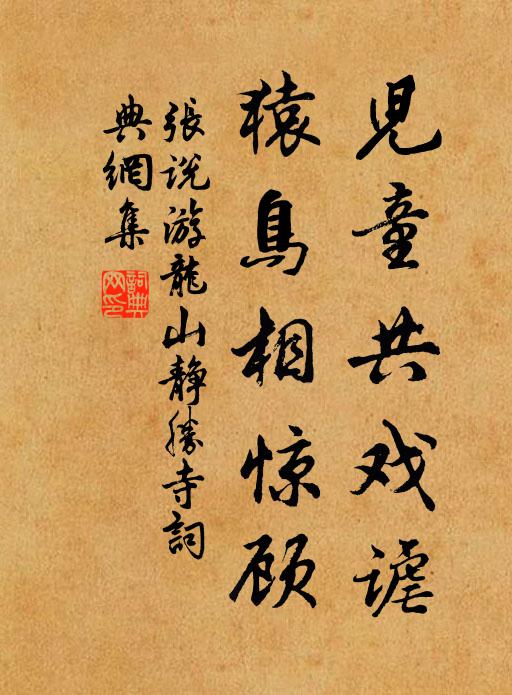 兒童共戏謔
猿鳥相惊顾
张说游龍山静勝寺詞
典網集
詞典网印